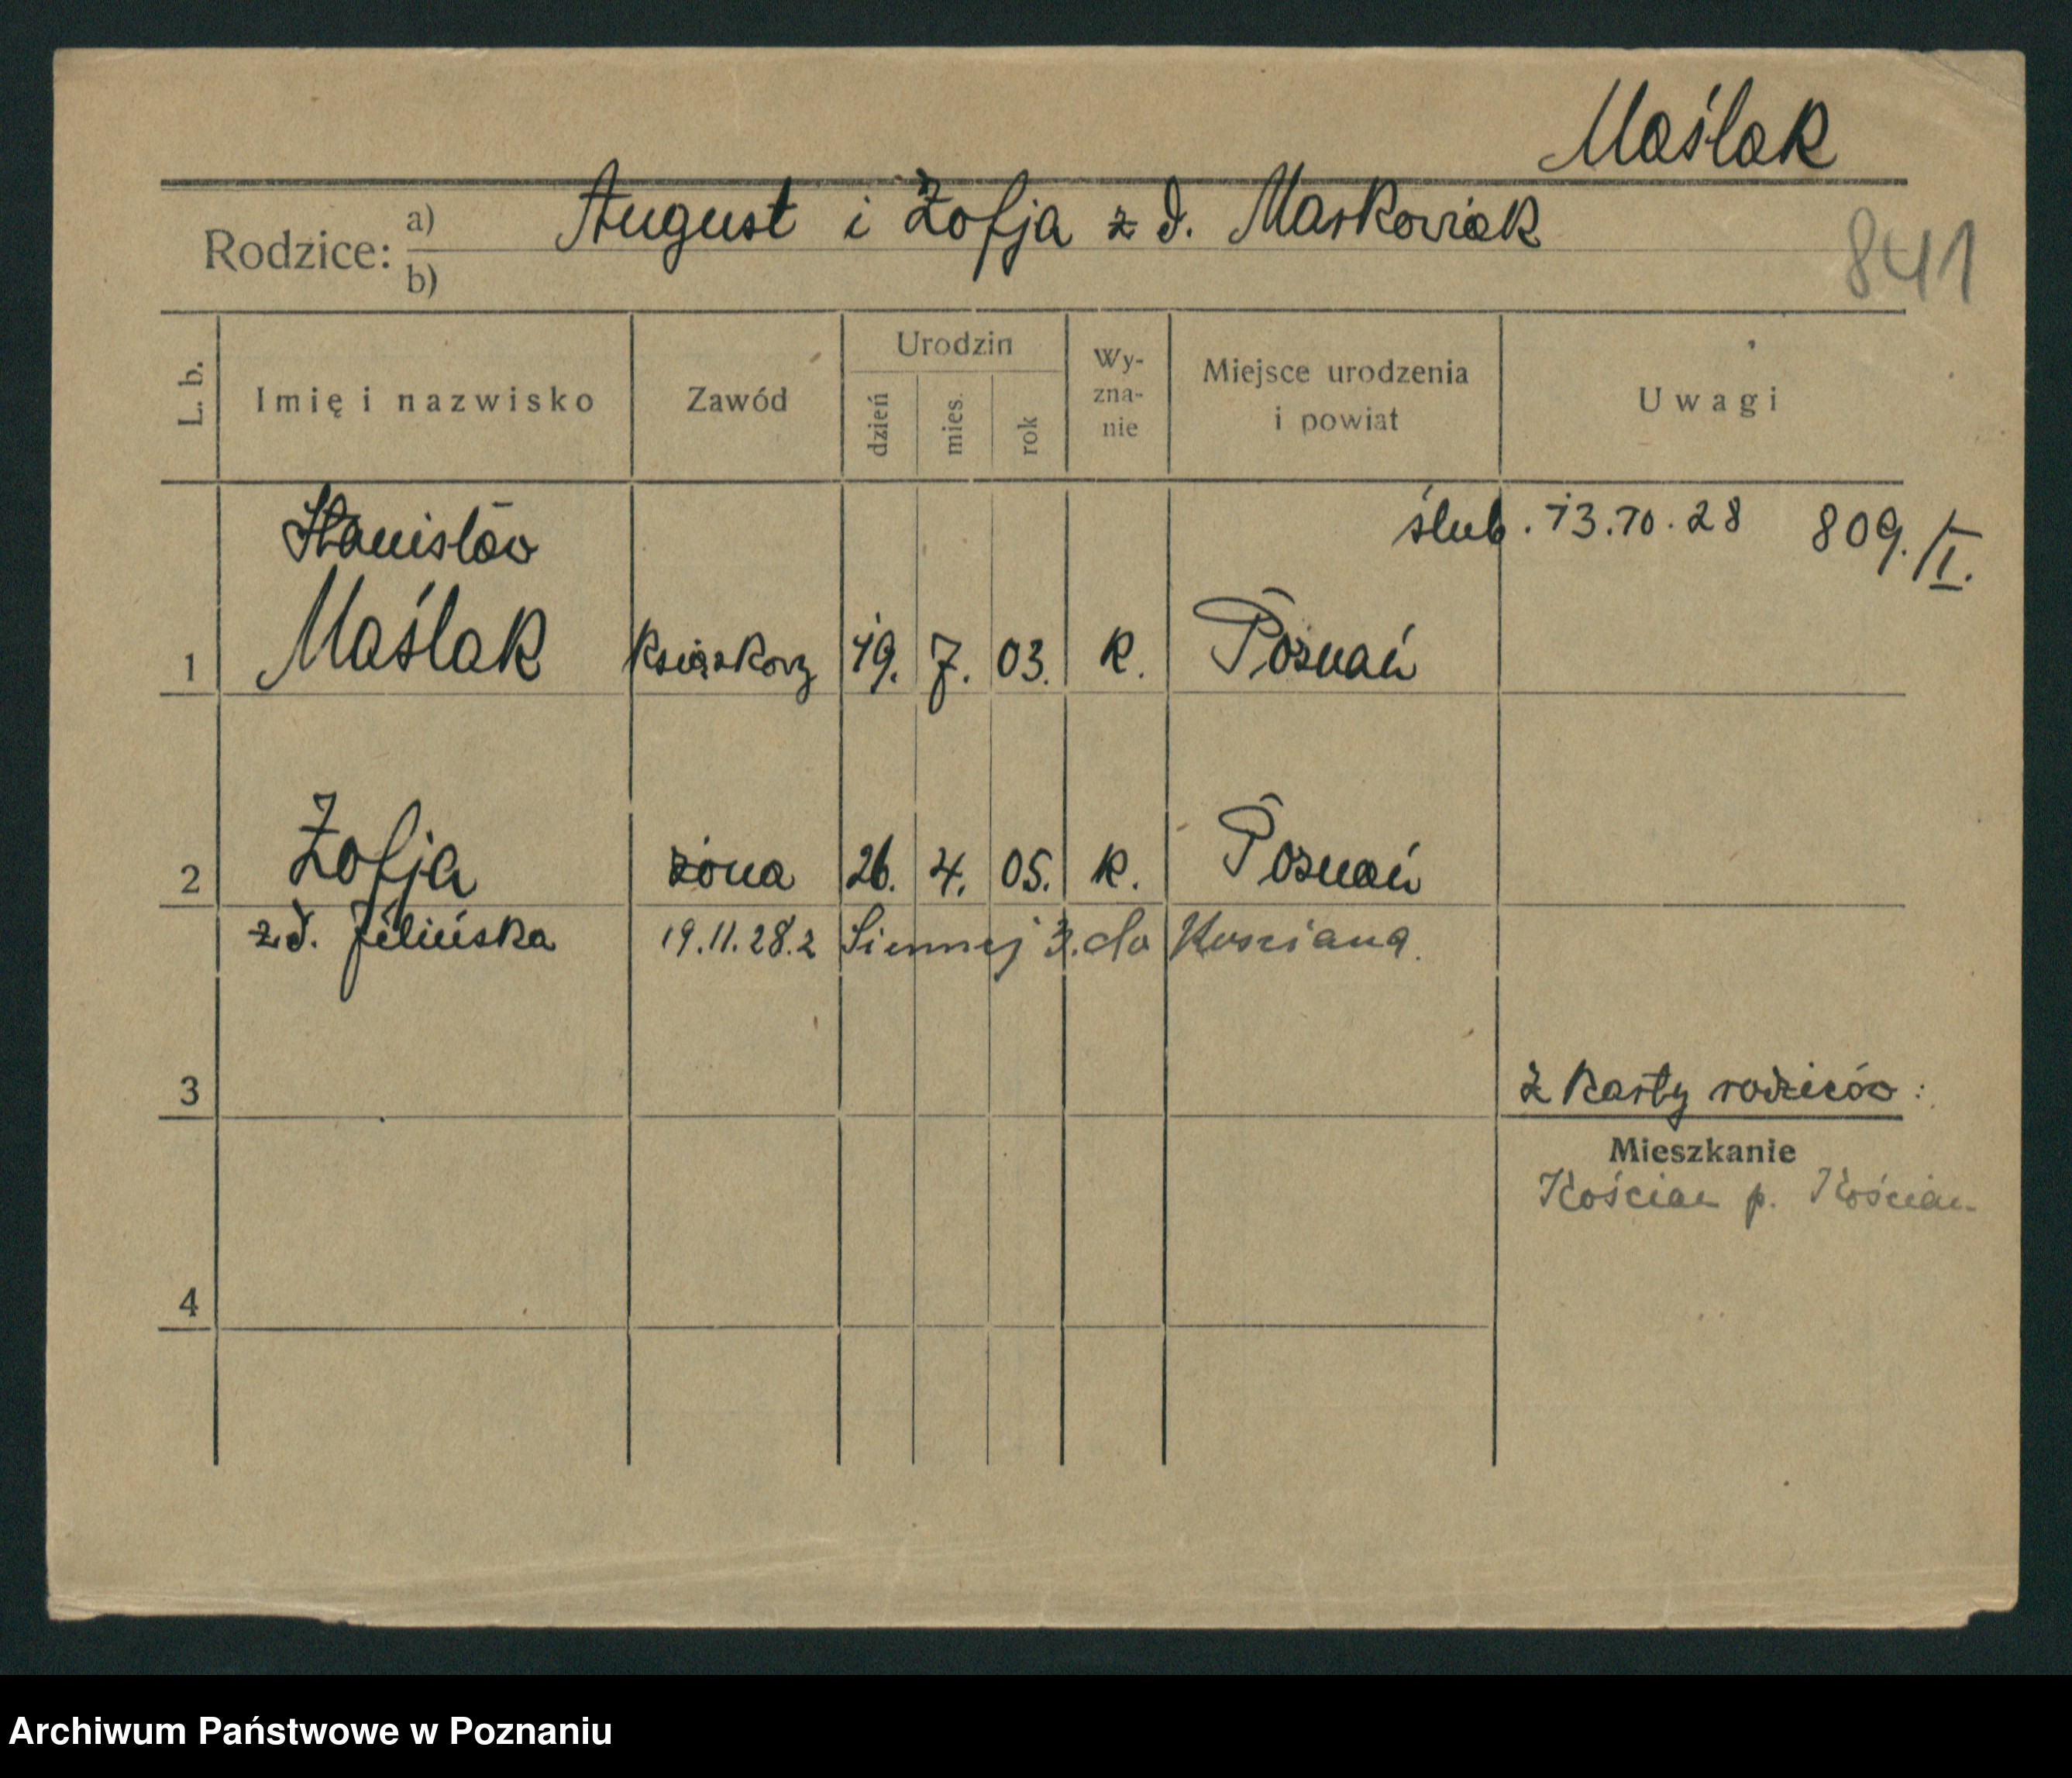 Maślak
Rodzice: a) August i Zofja z d. Maskowiak
b)
841
L. b. Imię i nazwisko Zawód Urodzin dzień mies. rok Wy-zna-nie Miejsce urodzenia i powiat Uwagi
ślub. 13.10.28 809./I.
Stanisław
1 Maślak książkowy 19. 7. 03. k. Poznań
2 Zofja żona 26. 4. 05. k. Poznań
z d. Jilińska 19.11.28. z Siennej 3. do Kosciana.
3 z karty rodziców:
Mieszkanie
Kościan p. Kościan
4
Archiwum Państwowe w Poznaniu